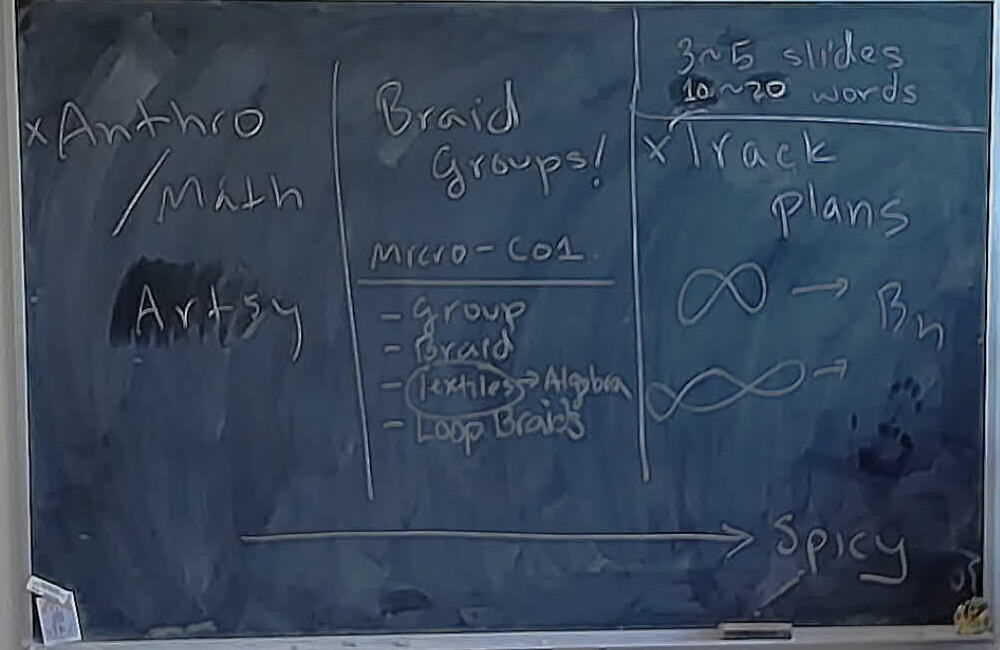 x Anthro
/Math
Artsy
Braid
Groups!
Micro-Co1
- Group
- Braid
- Textiles → Algebra
- Loop Braids
3~5 slides
10~20 words
x Track
plans
∞ → Bn
→
→ Spicy